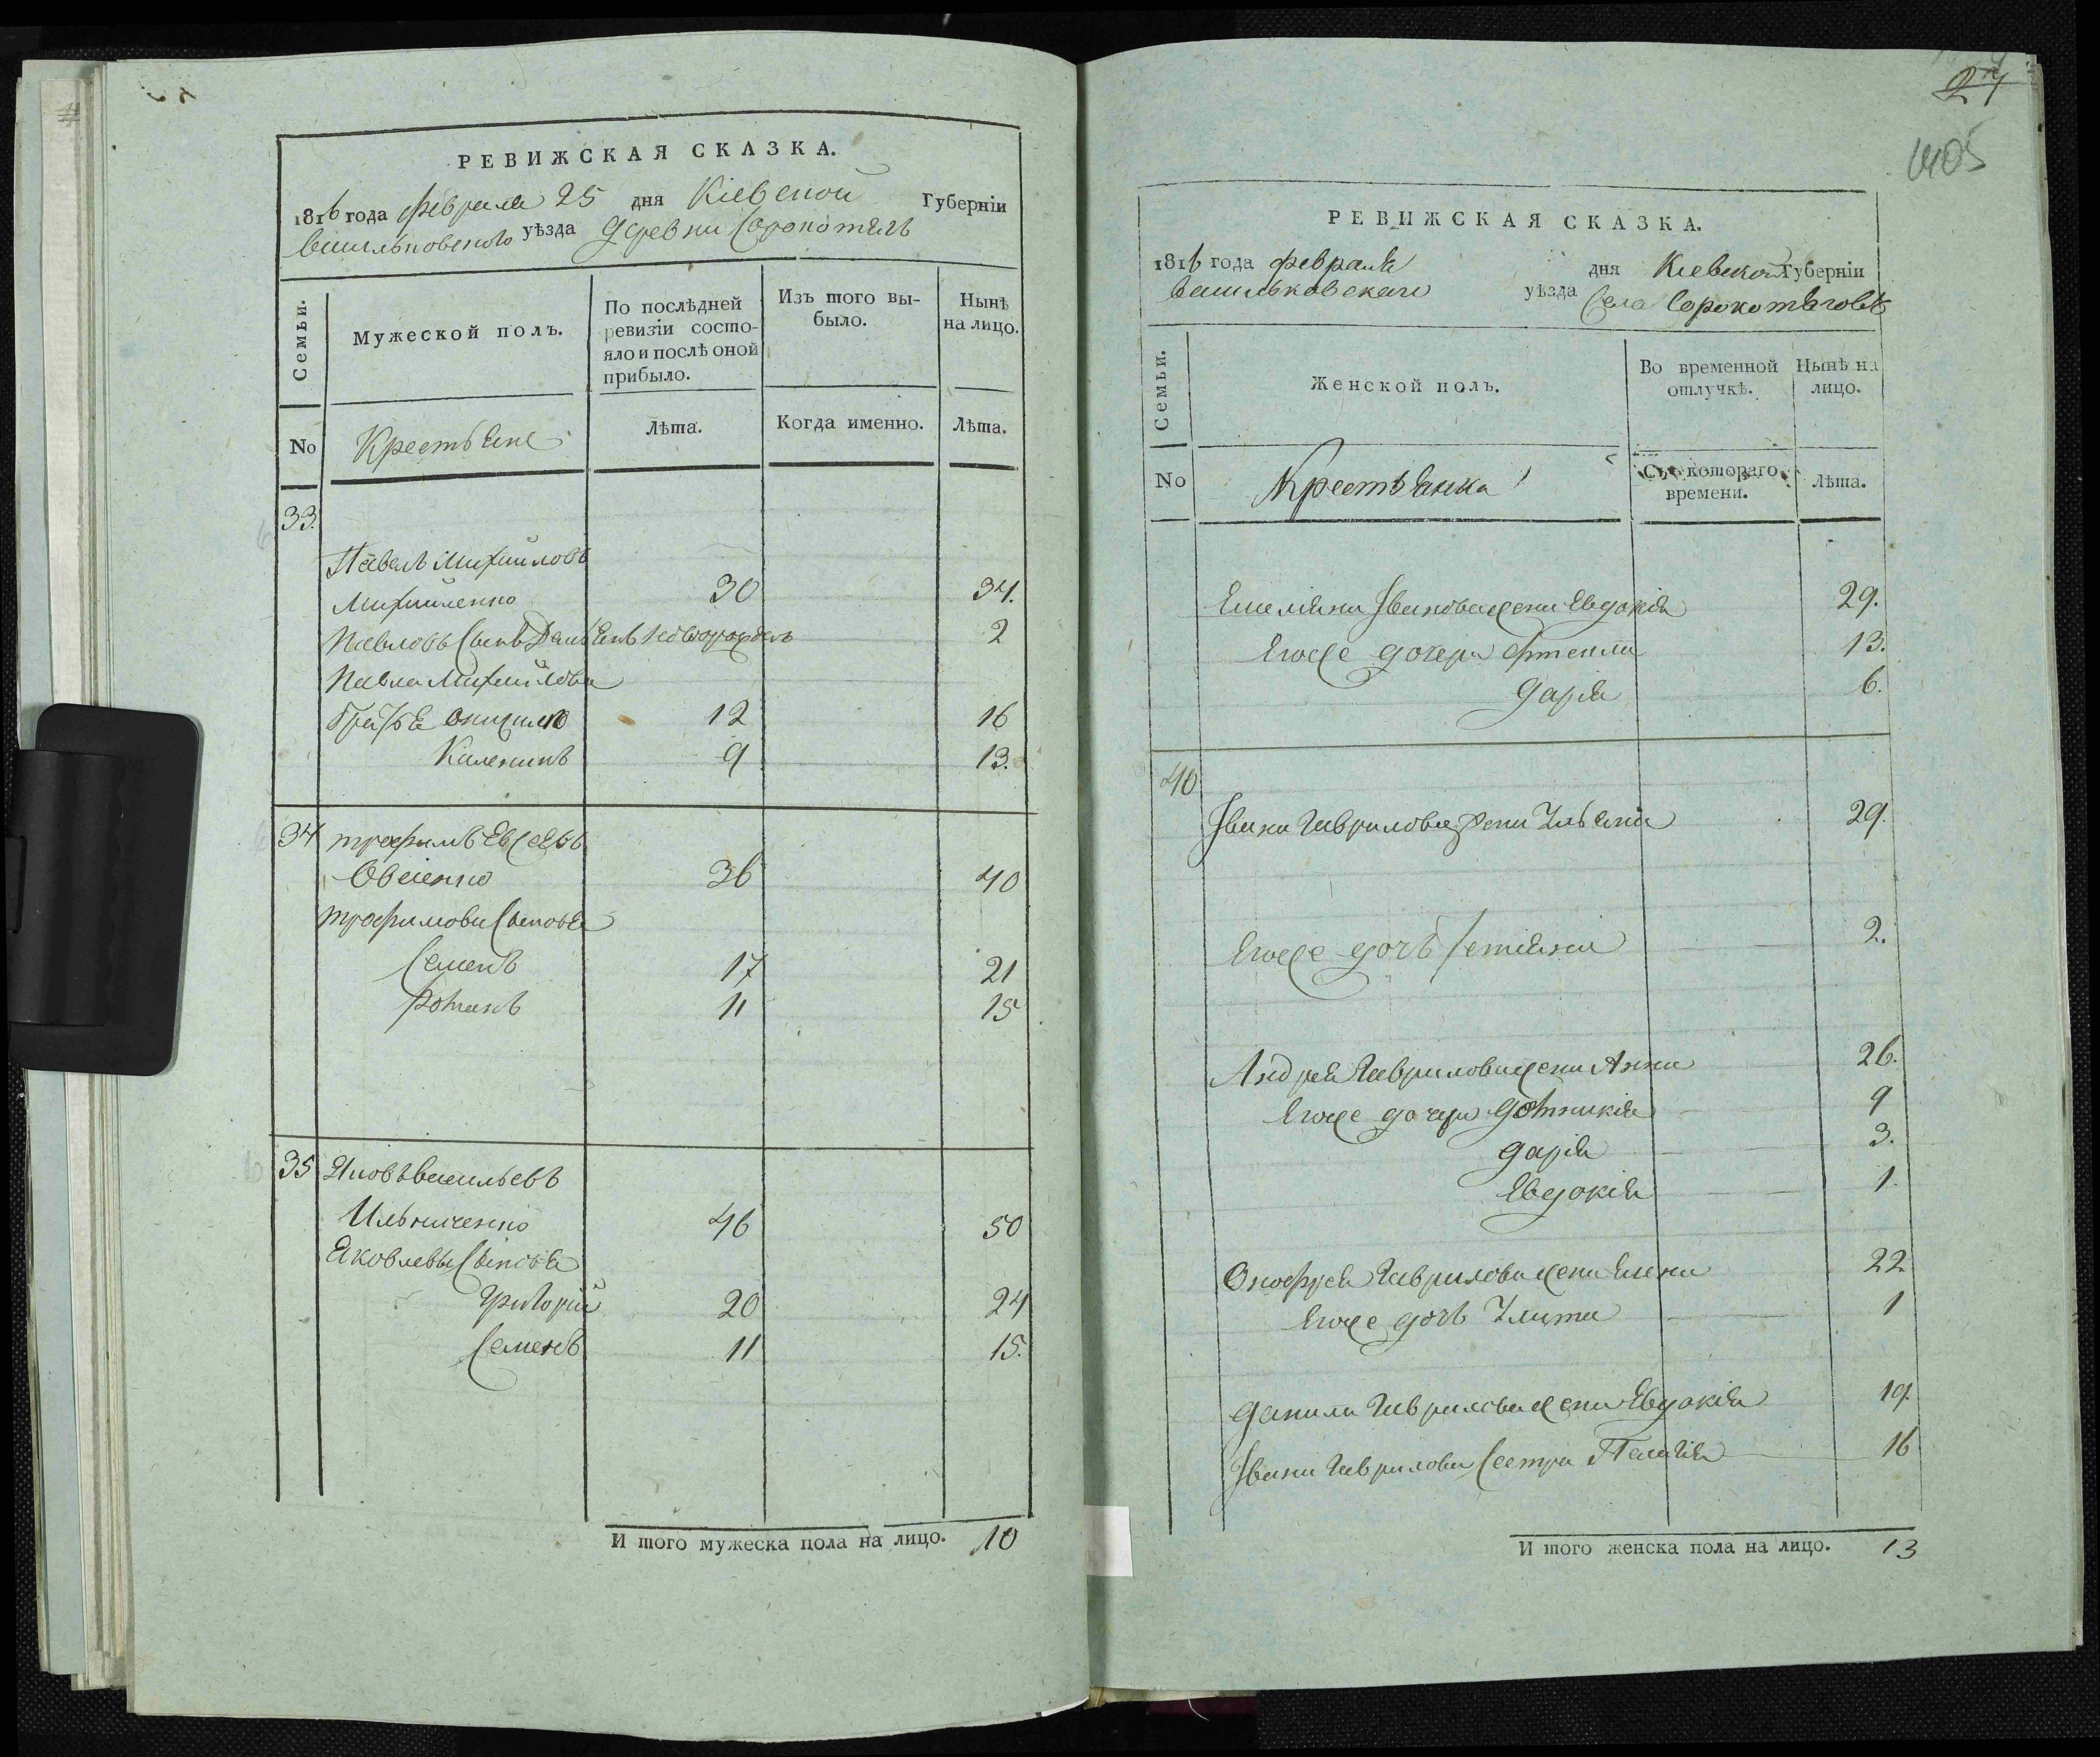 РЕВИЖСКАЯ СКАЗКА.
1816 года февраля 25 дня Кіевской Губерніи
васильковского уѣзда деревни Сорокотягъ
Семьи.
Мужеской полъ.
По послѣдней ревизіи состо-
яло и послѣ оной прибыло.
Изъ того вы-
было.
Нынѣ
на лицо.
No
Крестьяне
Лѣта.
Когда именно.
Лѣта.
33.
Павелъ Михайловъ
Михайленко 30 34.
Павловъ Сынъ новорожденъ 2
Павла Михайлова
братья 12 16
Каленикъ 9 13.
34 трофимъ Евсеевъ
Овсіенко 36 40
трофимовы Сыновья
Семенъ 17 21
романъ 11 15
35 Яковъ васильевъ
Ильниченко 46 50
Яковлевы Сыновья
григорій 20 24
Семенъ 11 15.
И того мужеска пола на лицо. 10
27
1405
РЕВИЖСКАЯ СКАЗКА.
1816 года февраля дня Кіевской Губерніи
васильковскаго уѣзда Села Сорокотяговъ
Семьи.
Женской полъ.
Во временной
отлучкѣ.
Нынѣ на
лицо.
No
Крестьянка
Съ котораго
времени.
Лѣта.
Емеліяна Іванова жена Евдокія 29.
Егоже дочери 13.
дарія 6.
40
Івана гаврилова жена Ульяна 29.
Егоже дочь 2.
Андрея гаврилова жена Анна 26.
Егоже дочери домникія 9
дарія 3.
Евдокія 1.
Онофрея гаврилова жена Елена 22
Егоже дочь Улита 1
данила гаврилова жена Евдокія 19.
Івана гаврилова Сестра Палагія 16
И того женска пола на лицо. 13